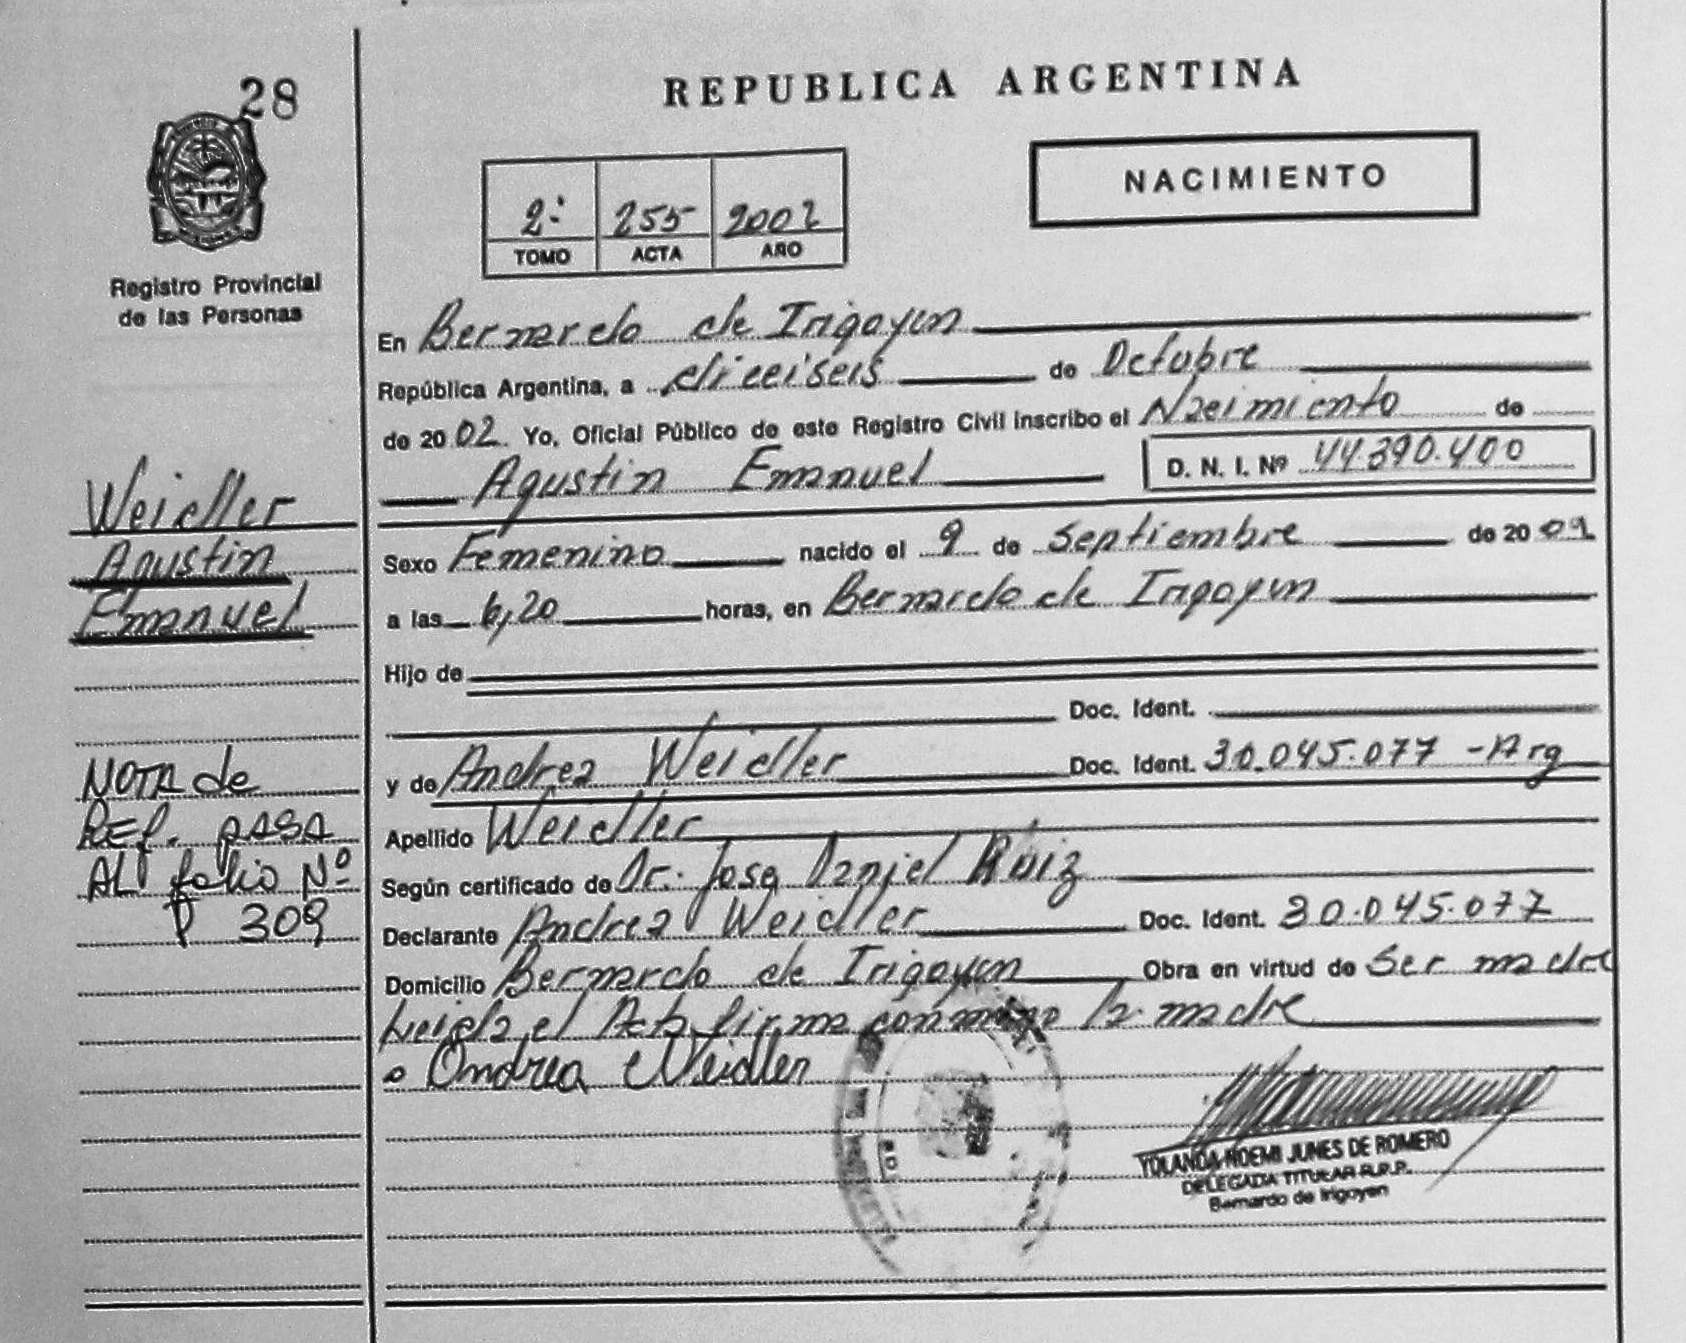 28
REPUBLICA ARGENTINA
NACIMIENTO
2: 255 2002
TOMO ACTA AÑO
Registro Provincial
de las Personas
En Bernardo de Irigoyen
República Argentina, a dieciseis de Octubre
de 2002. Yo, Oficial Público de este Registro Civil inscribo el Nacimiento de
Agustin Emanuel D. N. I. Nº 44.390.400
Weidler
Agustin
Emanuel
Sexo Femenino nacido el 9 de Septiembre de 20
a las 6,20 horas, en Bernardo de Irigoyen
Hijo de
Doc. Ident.
y de Andrea Weidler Doc. Ident. 30.045.077 - Arg
Apellido Weidler
Según certificado de Dr. Jose Daniel Ruiz
Declarante Andrea Weidler Doc. Ident. 30.045.077
Domicilio Bernardo de Irigoyen Obra en virtud de Ser madre
Leida el Acta firma conmigo la madre
Andrea Weidler
NOTA de
REF. PASA
AL folio Nº
309
YOLANDA NOEMI JUNES DE ROMERO
DELEGADA TITULAR R.P.P.
Bernardo de Irigoyen